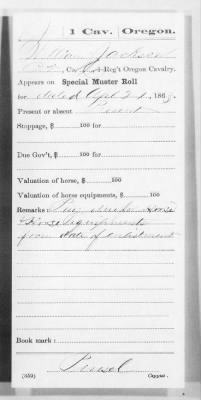 J | 1 Cav. | Oregon.
William Jackson
Co. , 1 Reg't Oregon Cavalry.
Appears on Special Muster Roll
for dated Apl 21, 1863
Present or absent Present
Stoppage, $ 100 for
Due Gov't, $ 100 for
Valuation of horse, $ 100
Valuation of horse equipments, $ 100
Remarks: Horse
& Horse equipments
from date of enlistment
Book mark:
(359) Copyist.